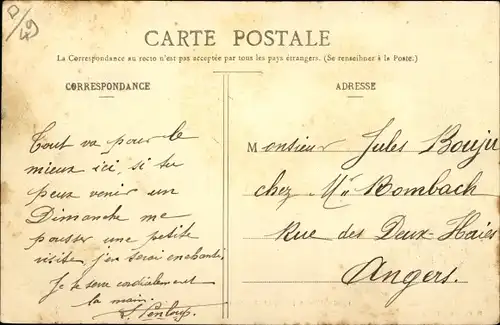 D/49
CARTE POSTALE
La Correspondance au recto n'est pas acceptée par tous les pays étrangers. (Se renseigner à la Poste.)
CORRESPONDANCE
Tout va pour le
mieux ici, si tu
peux venir un
Dimanche me
pousser une petite
visite j'en serai enchanté.
Je te serre cordialement
la main.
ADRESSE
Monsieur Jules Bouju
chez Mr Bombach
Rue des Deux-Haies
Angers.